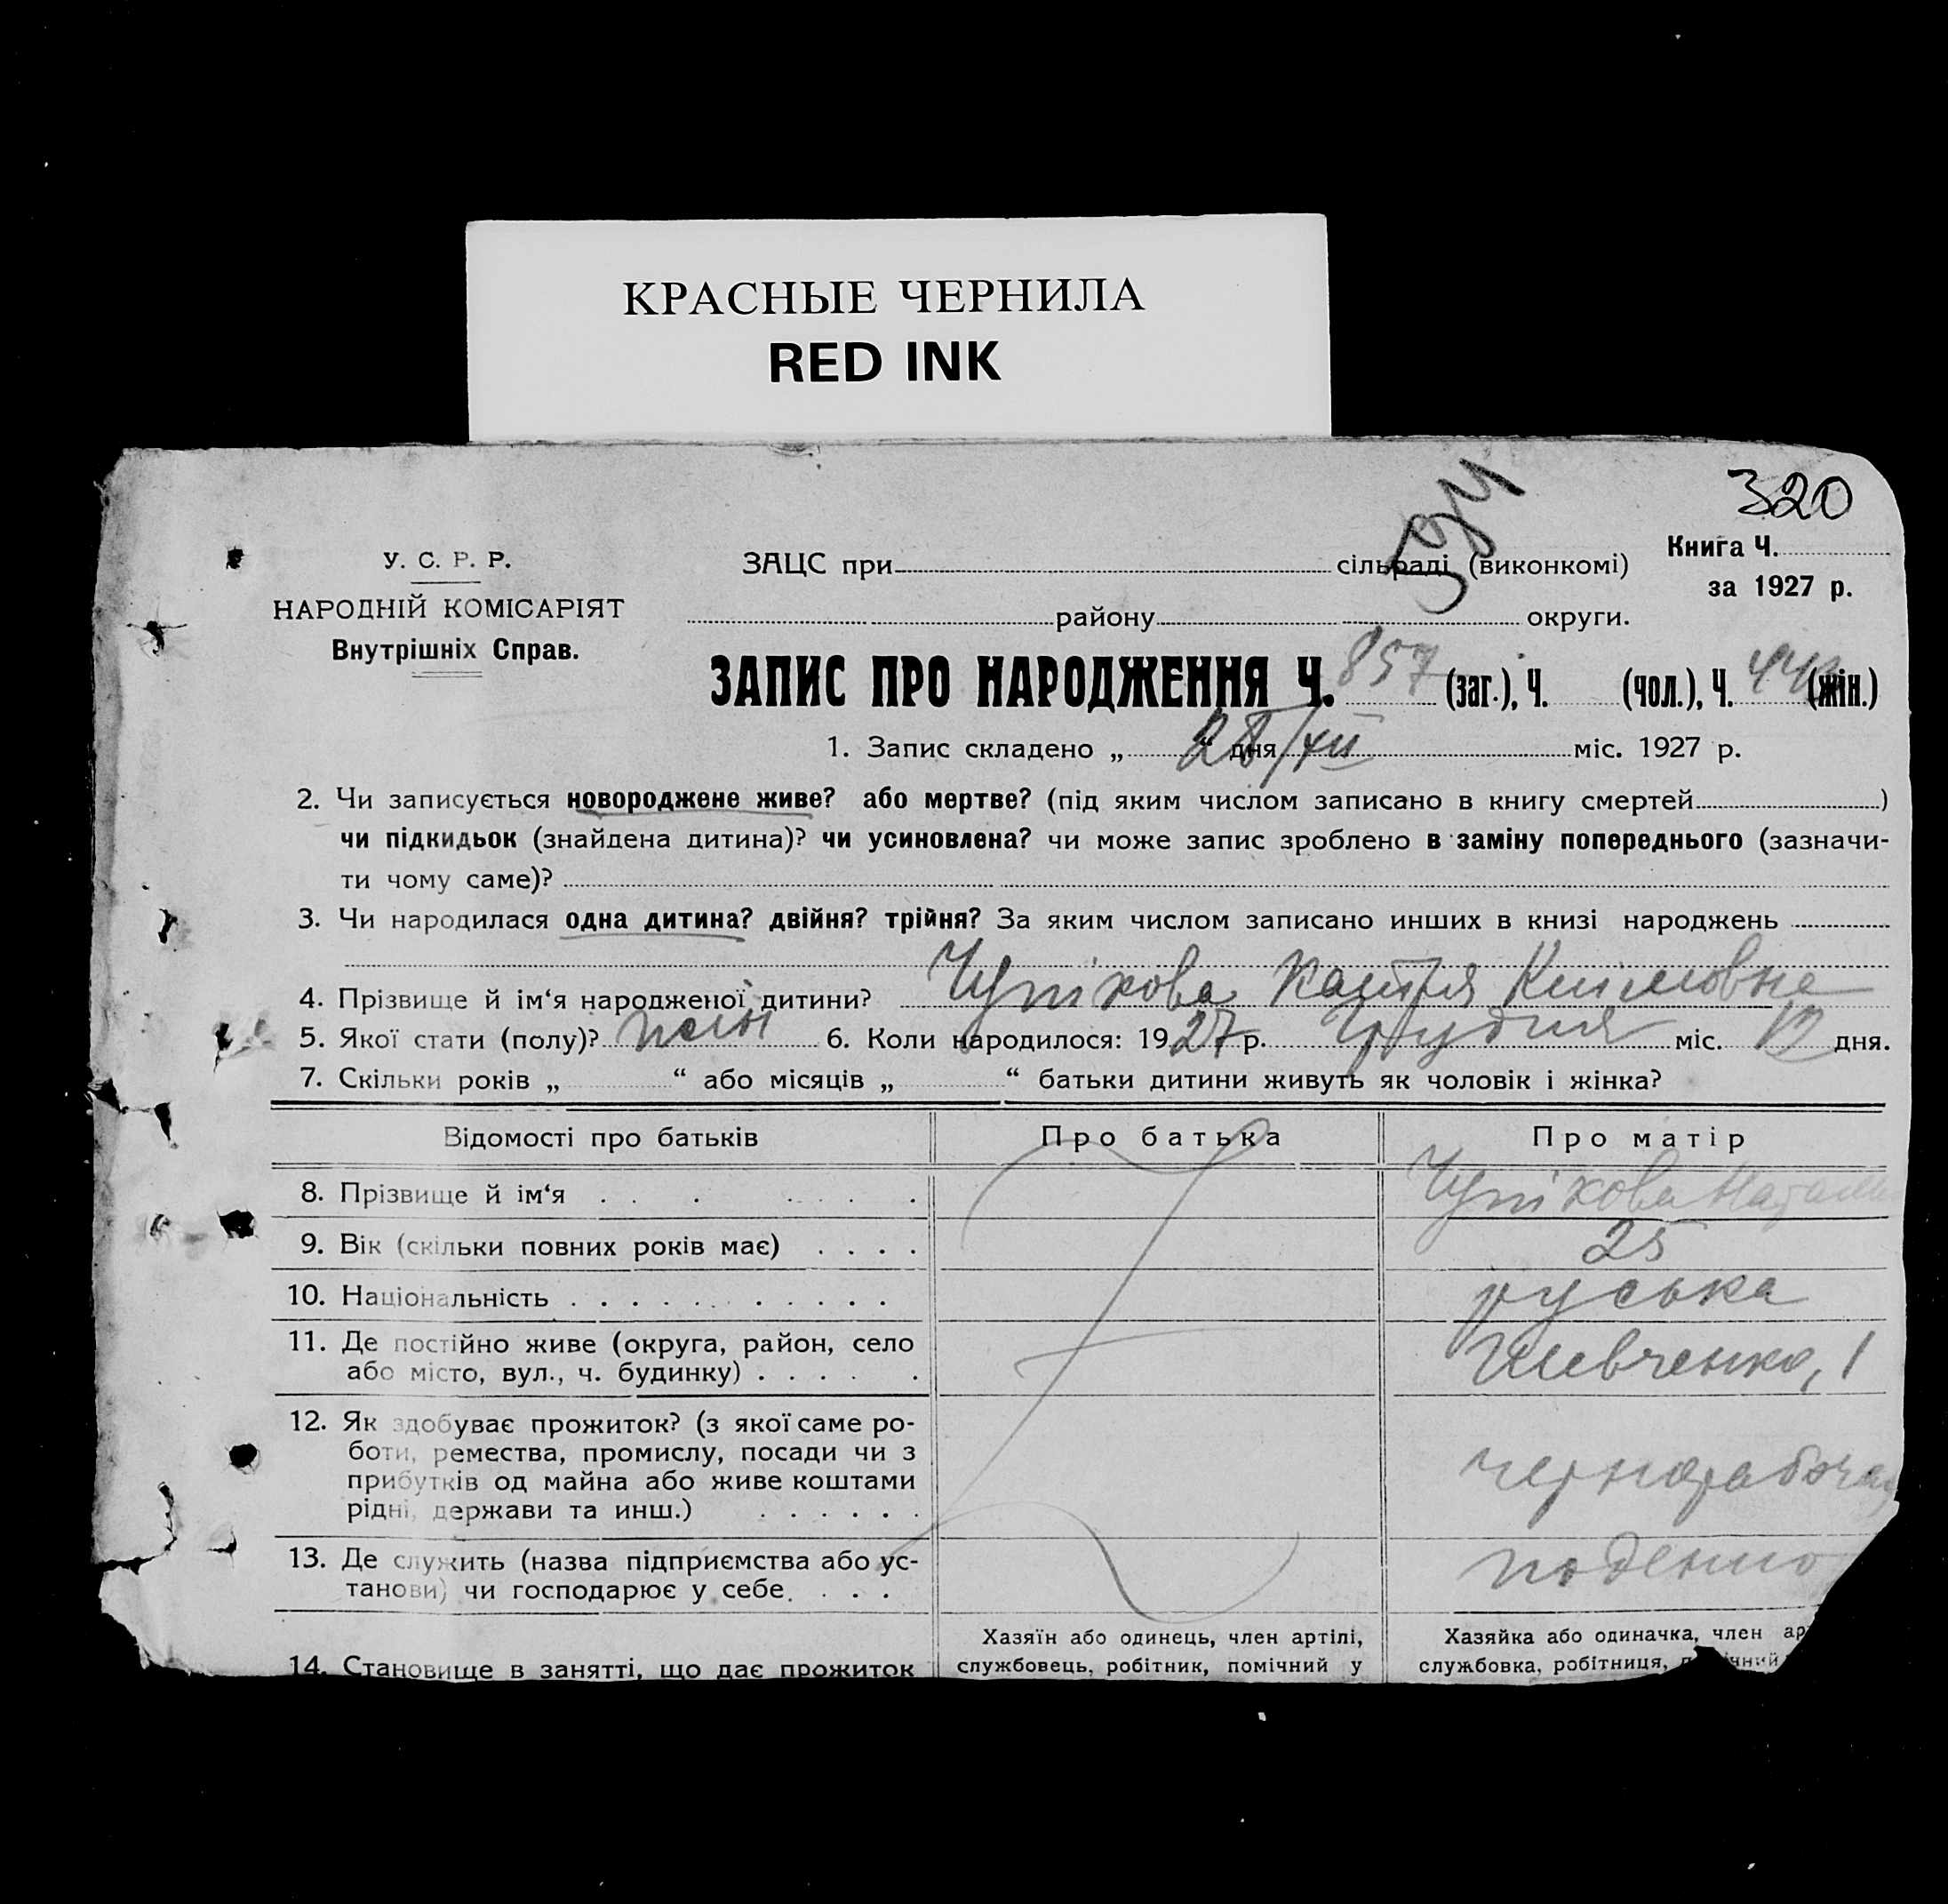 КРАСНЫЕ ЧЕРНИЛА
RED INK
320
594
У. С. Р. Р.
НАРОДНІЙ КОМІСАРІЯТ
Внутрішніх Справ.
ЗАЦС при сільраді (виконкомі)
району округи.
Книга Ч.
за 1927 р.
ЗАПИС ПРО НАРОДЖЕННЯ Ч. 857 (заг.), Ч. (чол.), Ч. (жін.)
1. Запис складено „ 28/XII “ дня міс. 1927 р.
2. Чи записується новороджене живе? або мертве? (під яким числом записано в книгу смертей )
чи підкидьок (знайдена дитина)? чи усиновлена? чи може запис зроблено в заміну попереднього (зазначи-
ти чому саме)?
3. Чи народилася одна дитина? двійня? трійня? За яким числом записано инших в книзі народжень
4. Прізвище й ім‘я народженої дитини? Чупікова Катря Климовна
5. Якої стати (полу)? жін 6. Коли народилося: 1927 р. Грудня міс. 12 дня.
7. Скільки років „ “ або місяців „ “ батьки дитини живуть як чоловік і жінка?
Відомості про батьків Про батька Про матір
8. Прізвище й ім‘я . . . . . . . Чупікова
9. Вік (скільки повних років має) . . . . 25
10. Національність . . . . . . . . . . . руська
11. Де постійно живе (округа, район, село
або місто, вул., ч. будинку) . . . . . Шевченко, 1
12. Як здобуває прожиток? (з якої саме ро-
боти, ремества, промислу, посади чи з
прибутків од майна або живе коштами
рідні, держави та инш.) . . . . . . чернорабочая
13. Де служить (назва підприємства або ус-
танови) чи господарює у себе . . . . поденно
14. Становище в занятті, що дає прожиток
Хазяїн або одинець, член артілі,
службовець, робітник, помічний у
Хазяйка або одиначка, член ар
службовка, робітниця,